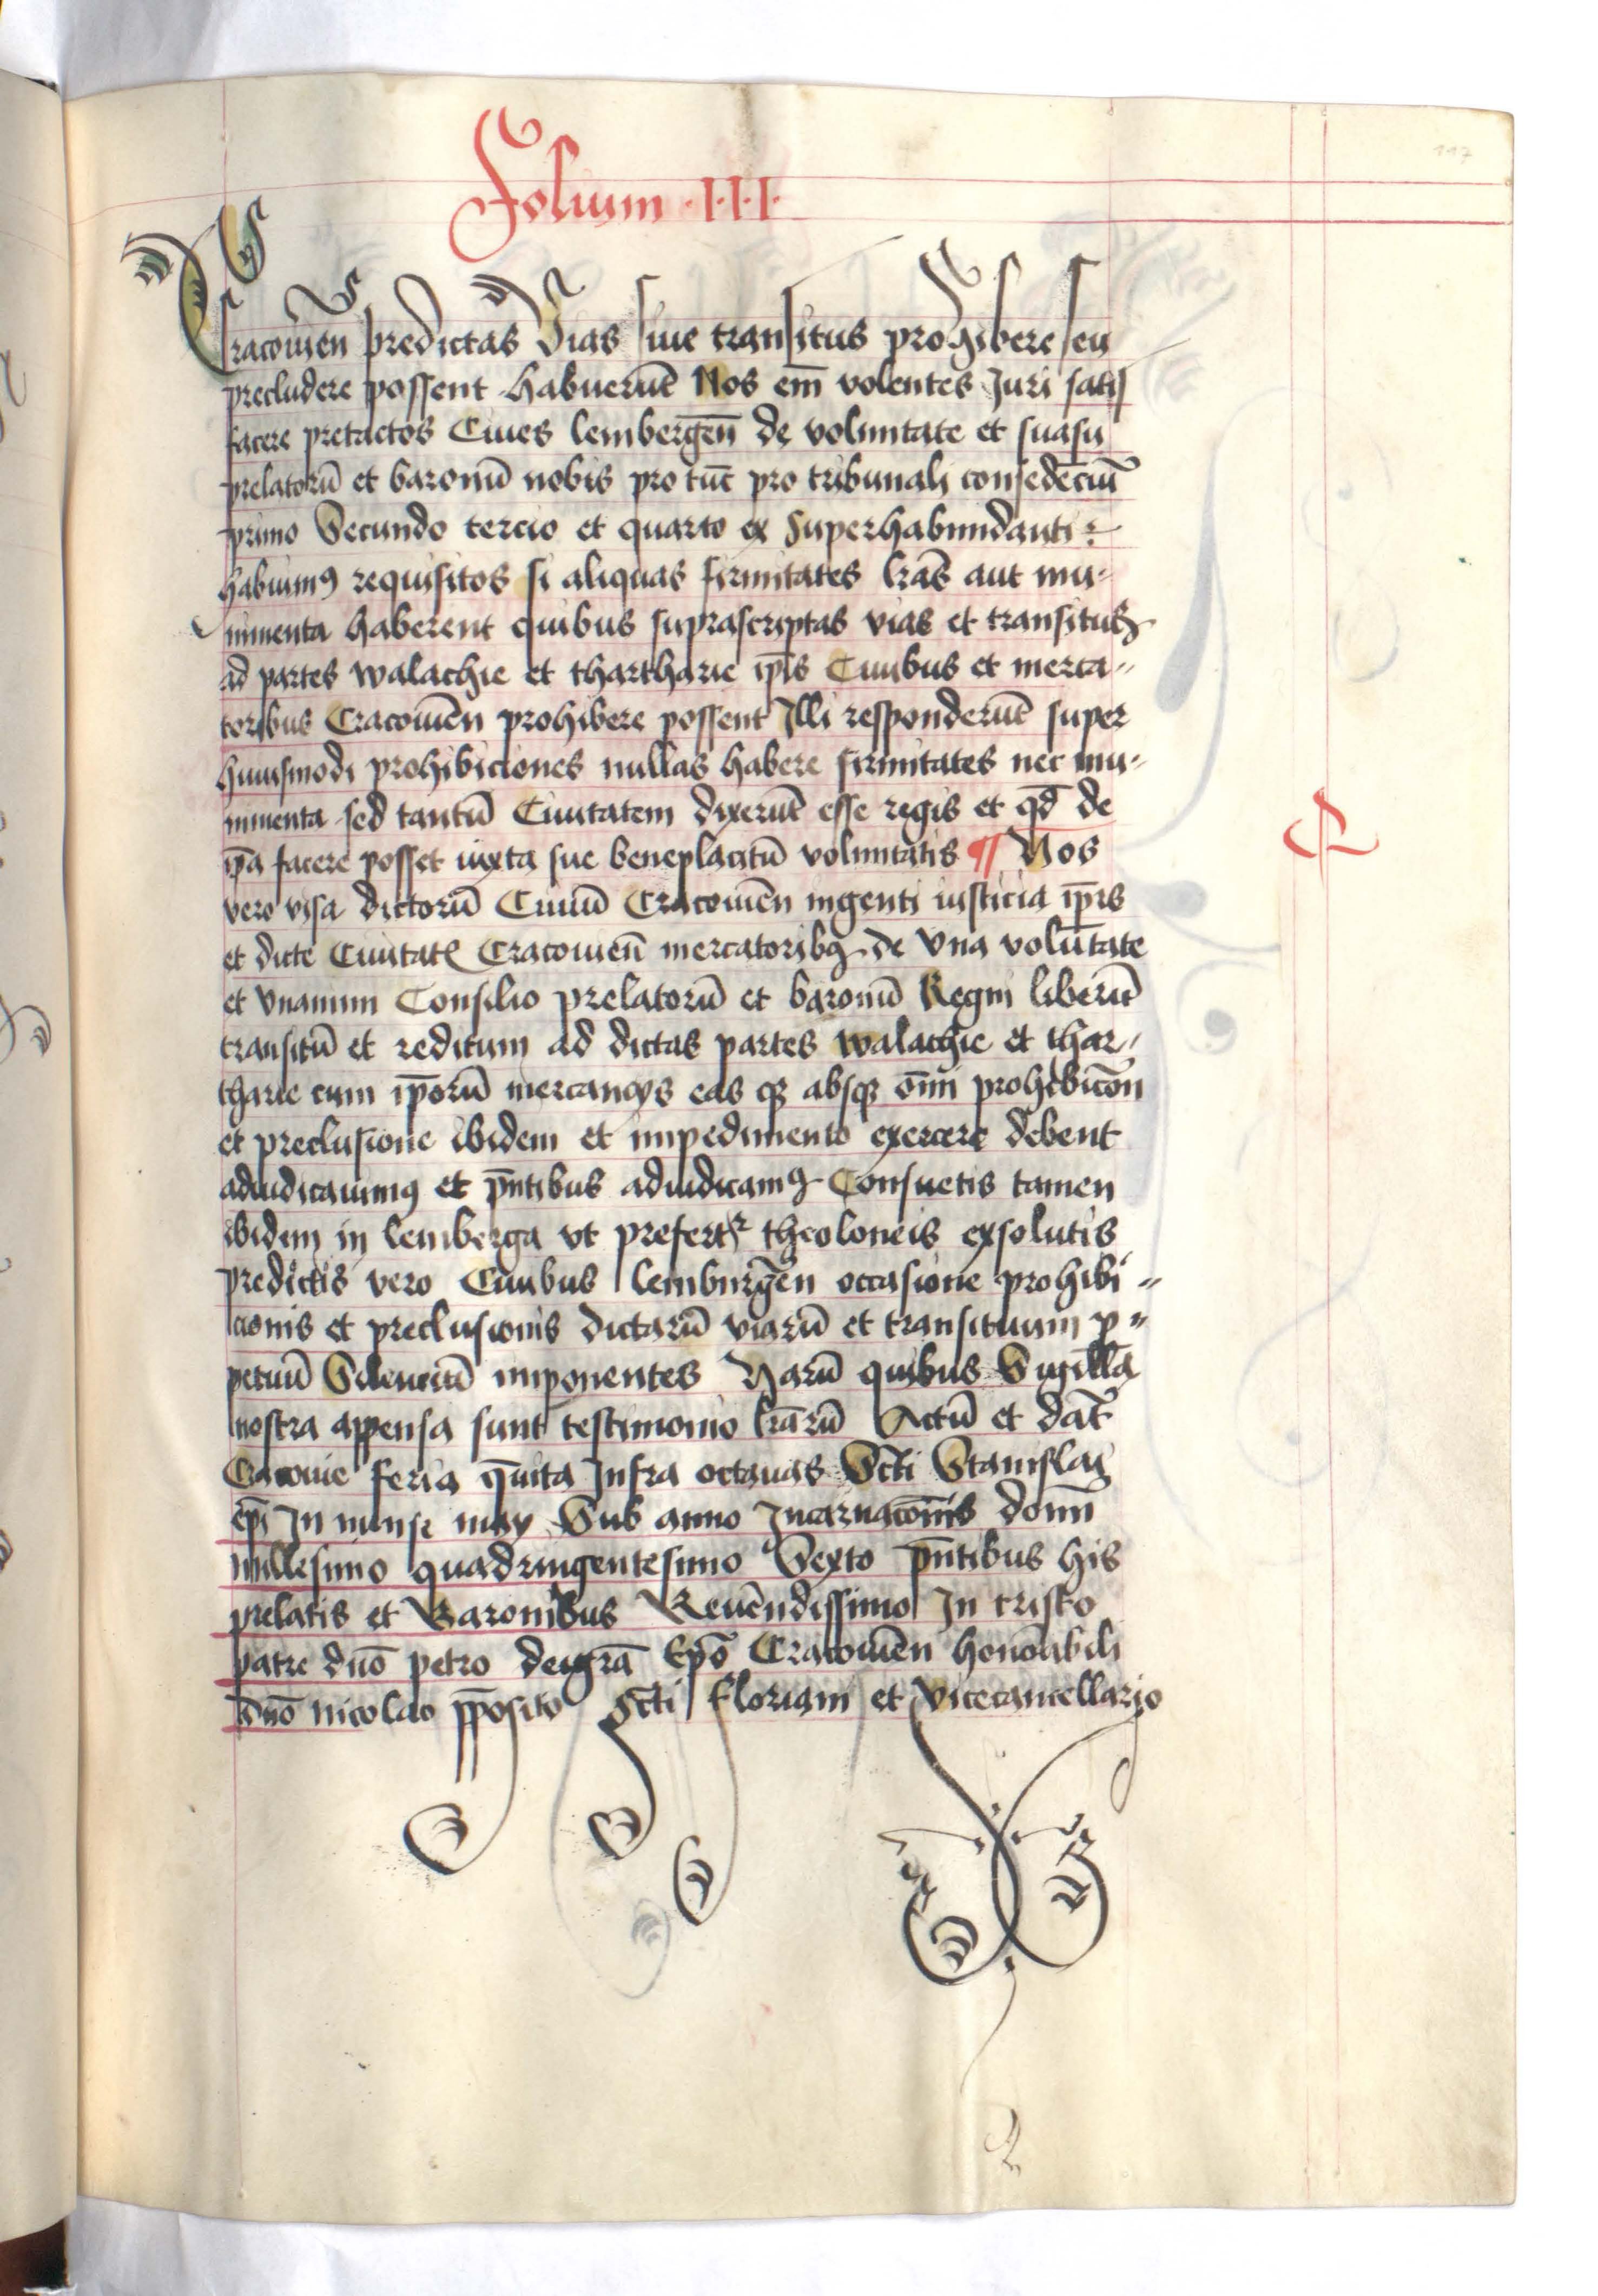 Folium ·I·I·I·
117
Cracouien̄ predictas Vias siue transitus prohibere seu
precludere possent habuerūt Nos em̄ volentes Juri satis
facere pretactos Ciues lembergen̄ de voluntate et suasu
prelatorū et baronū nobis pro tūc pro tribunali consedēciū
primo Secundo tercio et quarto ex superhabundanti
habuimꝰ requisitos si aliquas firmitates lrās aut mu-
nimenta haberent quibus suprascriptas vias et transitus
ad partes walachie et thartharie ip̄is Ciuibus et merca-
toribus Cracouien̄ prohibere possent Illi responderūt super
huiusmodi prohibiciones nullas habere firmitates nec mu-
nimenta sed tantū Ciuitatem dixerūt esse regis et qd̄ de
ip̄a facere posset iuxta sue beneplacitū voluntatis ¶ Nos
vero visa dictorū Ciuiū Cracouien̄ ingenti iusticia ip̄is
et dicte Ciuitatꝭ Cracouien̄ mercatoribꝰ de Vna volūtate
et vnanimi Consilio prelatorū et baronū Regni liberū
transitū et reditum ad dictas partes walachie et thar-
tharie cum ip̄orū mercancijs eas qꝫ absqꝫ om̄i prohibicōn
et preclusione ibidem et impedimento exercere debent
adiudicauimꝰ et pn̄tibus adiudicamꝰ Consuetis tamen
ibidem in lemberga vt prefertr̄ theoloneis exsolutis
predictis vero Ciuibus lemburgen̄ occasione prohibi-
cionis et preclusionis dictarū viarū et transituum p-
petuū Silenciū imponentes Harū quibus Sigilla
nostra appensa sunt testimonio lrārū Actū et dat̄
Cracouie feria quīta Infra octauas Sctī Stanislai
ep̄i In mense may Sub anno Incarnacōnis domī
millesimo quadringentesimo Sexto pn̄tibus his
prelatis et Baronibus Reuēndissimo In cristo
patre dn̄o petro dei grā Ep̄o Cracouien̄ honorabili
dn̄o nicolao pp̄osito sctī Floriani et vicecancellario